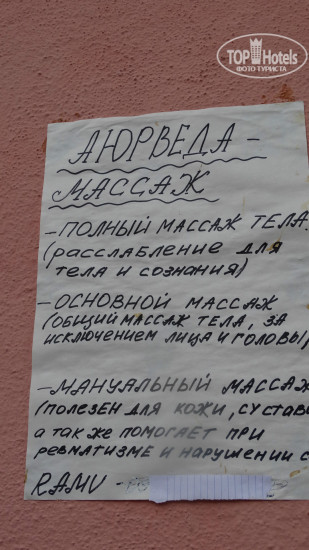 TOP Hotels
ФОТО ТУРИСТА
АЮРВЕДА -
МАССАЖ
- ПОЛНЫЙ МАССАЖ ТЕЛА.
(расслабление для
тела и сознания)
- ОСНОВНОЙ МАССАЖ
(ОБЩИЙ МАССАЖ ТЕЛА, ЗА
ИСКЛЮЧЕНИЕМ ЛИЦА И ГОЛОВЫ)
- МАНУАЛЬНЫЙ МАССАЖ
(ПОЛЕЗЕН ДЛЯ КОЖИ, СУСТАВО
а так же ПОМОГАЕТ ПРИ
РЕВМАТИЗМЕ И НАРУШЕНИИ С
RAMU -